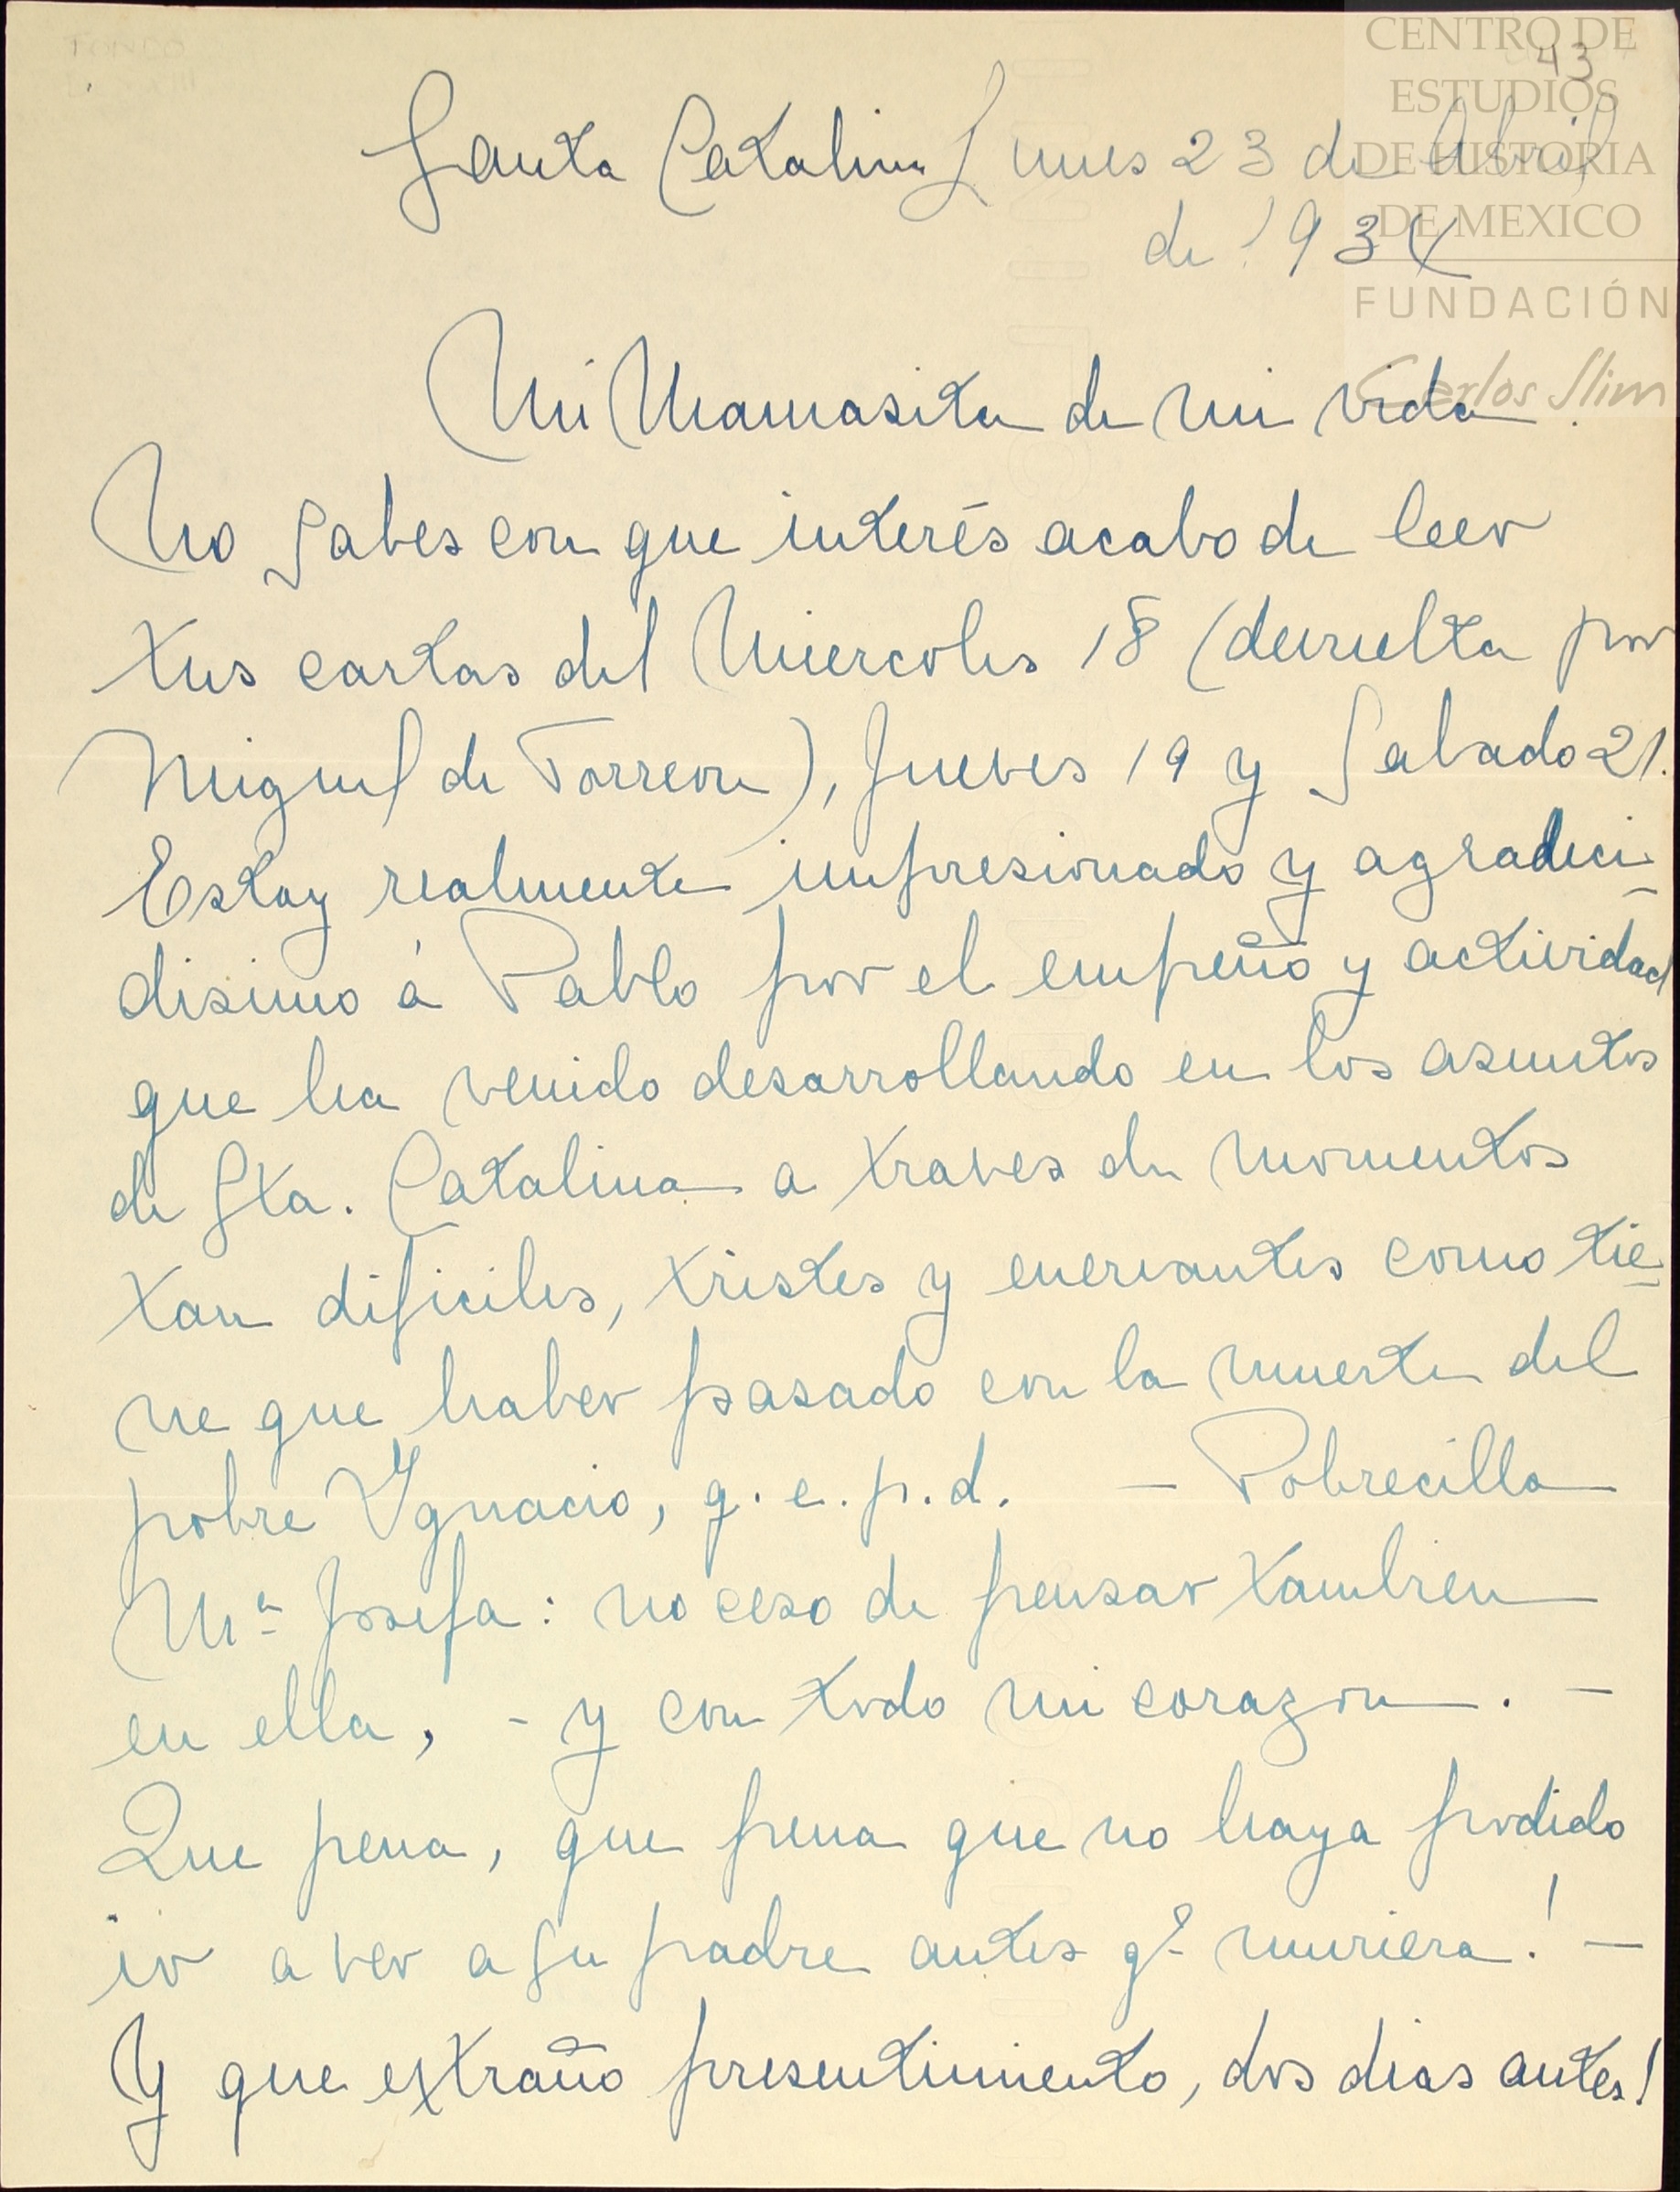 CENTRO DE
ESTUDIOS
DE HISTORIA
DE MEXICO
FUNDACIÓN
Carlos Slim
43
Santa Catalina Lunes 23 de Abril
de 1934
Mi Mamasita de mi vida.
No sabes con que interés acabo de leer
tus cartas del Miercoles 18 (devuelta por
Miguel de Torreon), Jueves 19 y Sabado 21.
Estoy realmente impresionado y agradeci-
disimo á Pablo por el empeño y actividad
que ha venido desarrollando en los asuntos
de Sta. Catalina a traves de momentos
tan dificiles, tristes y enervantes como tie-
ne que haber pasado con la muerte del
pobre Ygnacio, q. e. p. d. — Pobrecilla
Mª Josefa: no ceso de pensar tambien
en ella, - y con todo mi corazon. —
Que pena, que pena que no haya podido
ir a ver a su padre antes qe muriera! —
Y que extraño presentimiento, dos dias antes!